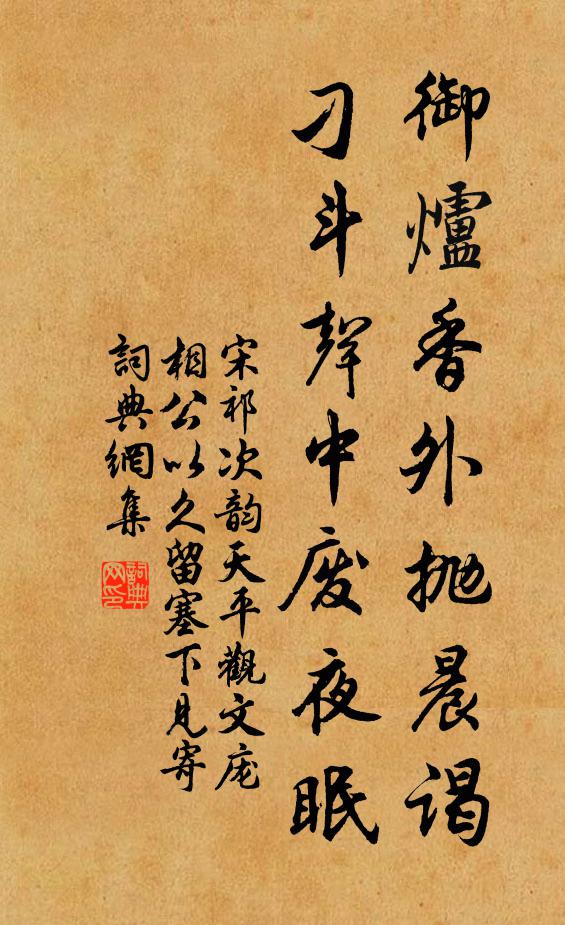 御爐香外抛晨谒
刁斗聲中废夜眠
宋祁次韵天平觀文庞
相公以久留塞下見寄
詞典網集
詞典网印